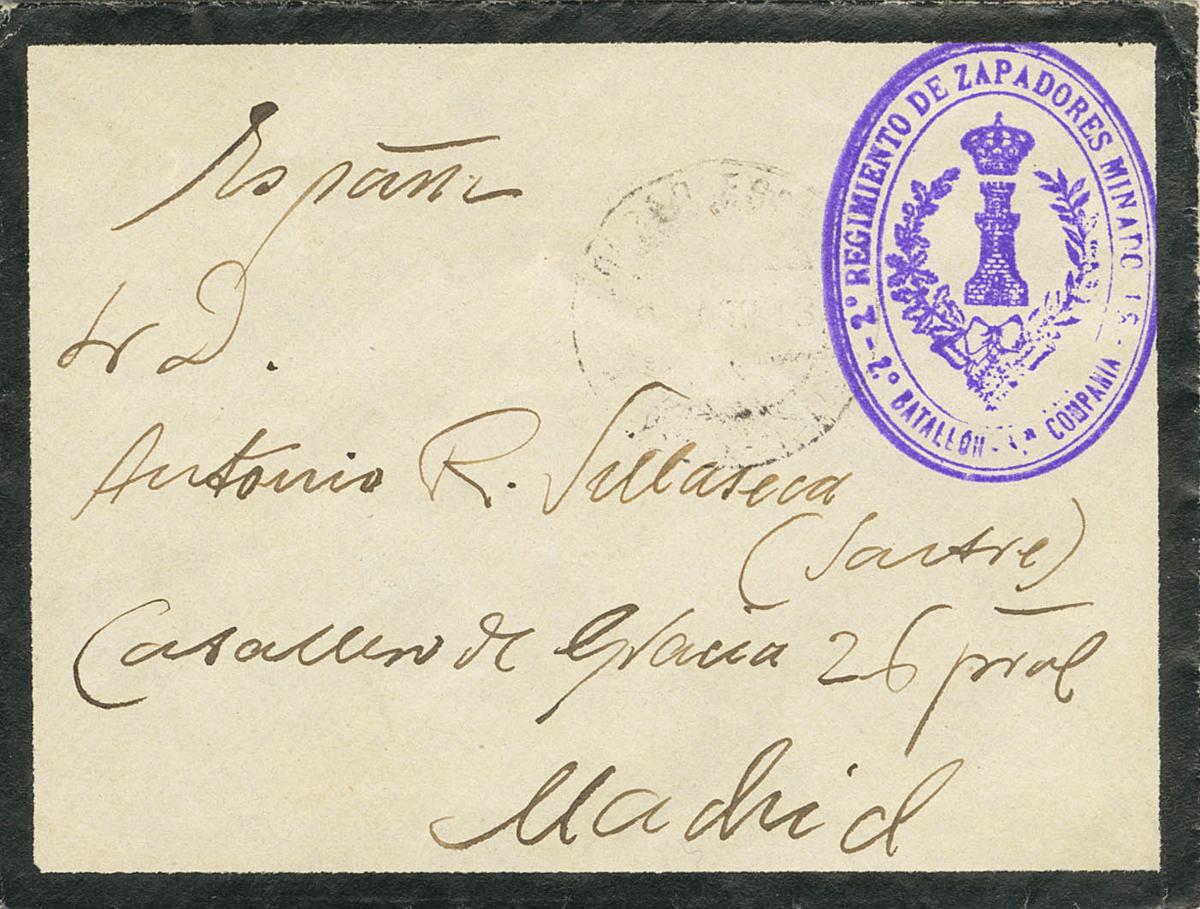 España
Sr D.
Antonio R. Villaseca
(Sastre)
Caballero de Gracia 26 pral
Madrid
2º REGIMIENTO DE ZAPADORES MINADO S -
- 2º BATALLÓN - 1ª COMPAÑIA